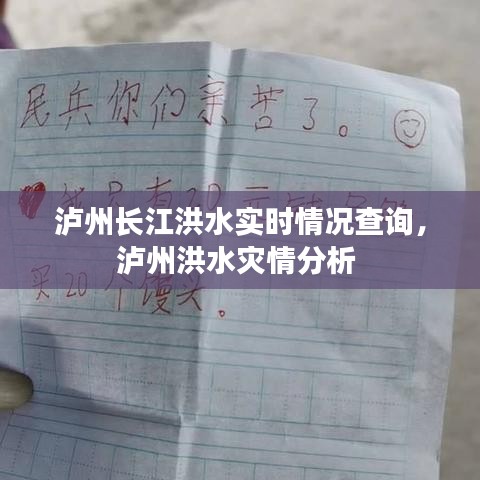 民兵你们亲苦了。
泸州长江洪水实时情况查询，
泸州洪水灾情分析
买20个馒头。